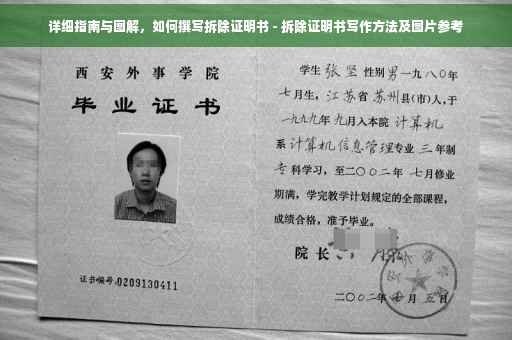 详细指南与图解，如何撰写拆除证明书 - 拆除证明书写作方法及图片参考
西安外事学院
毕业证书
证书编号:0209130411
学生 张坚 性别 男 一九八〇年
七月生，江苏省 苏州县(市)人,于
一九九九年九月入本院 计算机
系 计算机信息管理专业 三 年制
专科学习，至二〇〇二年 七月修业
期满，学完教学计划规定的全部课程，
成绩合格，准予毕业。
院长
二〇〇二年 月 五日